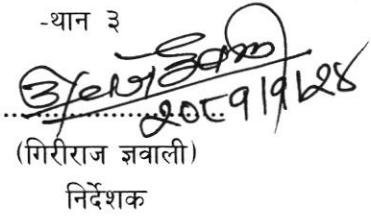 -थान ३
२०८१।१।२४
....................
(गिरीराज ज्ञवाली)
निर्देशक